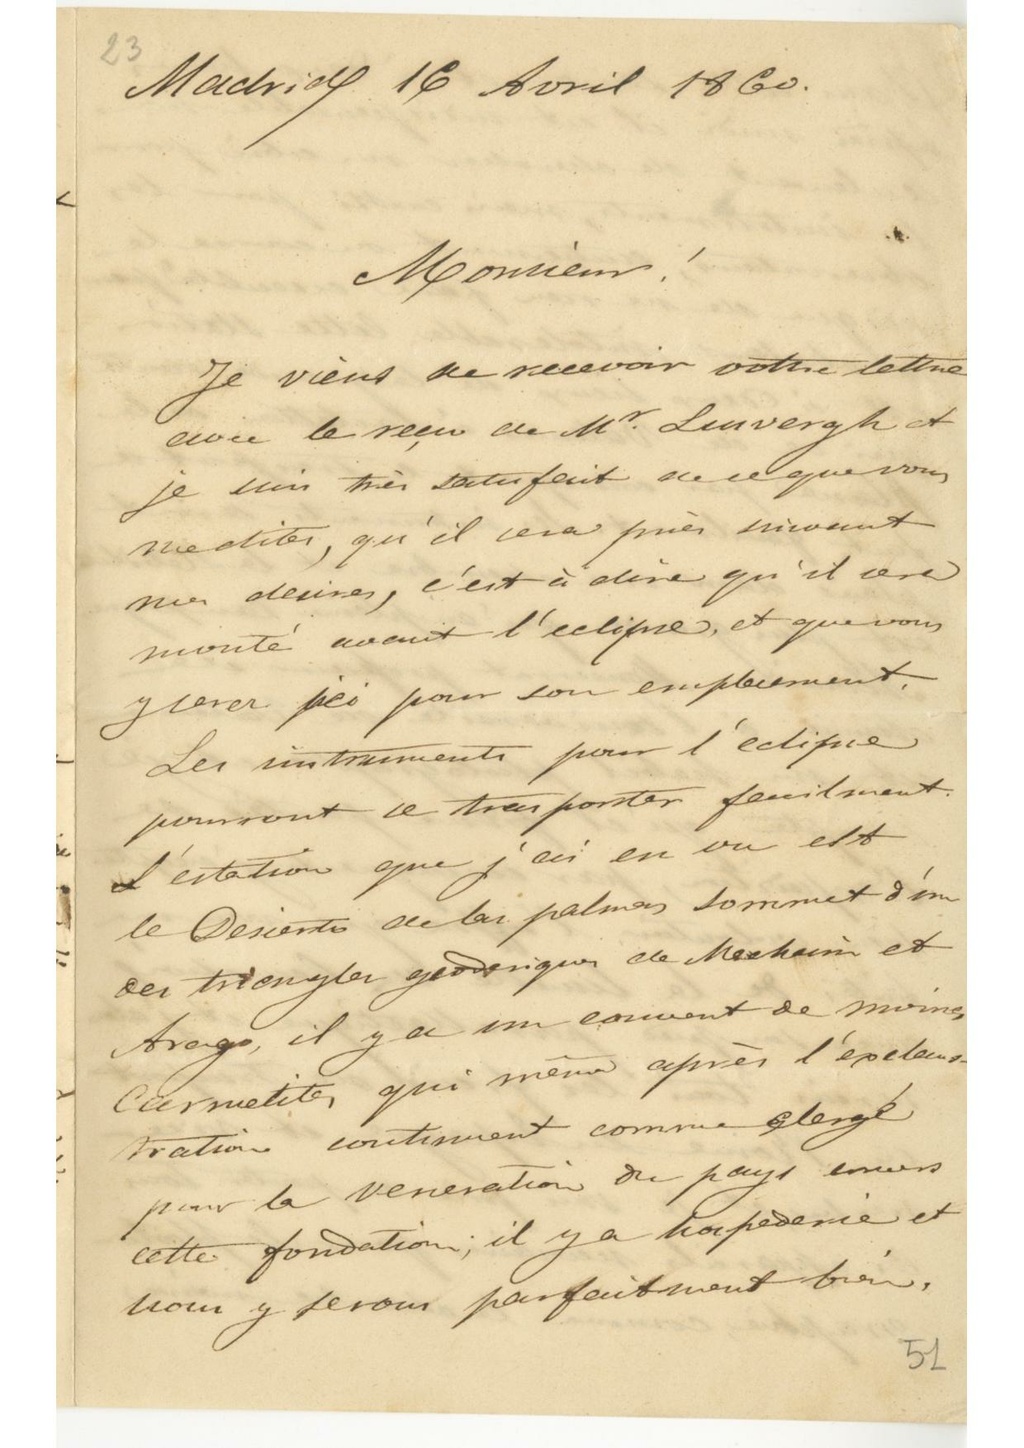 23
Madrid 16 Avril 1860.
Monsieur!
Je viens de recevoir votre lettre
avec le reçu de Mr. Lusvergh et
je suis très satisfait de ce que vous
me dites, qu'il sera près suivant
mes desires, c'est à dire qu'il sera
monté avant l'eclipse, et que vous
y serez ici pour son emplacement.
Les instruments pour l'eclipse
pourront se trasporter facilment.
L'estation que j'ai en vu est
le Desierto de las palmas sommet d'un
des triangles geodesiques de Mechain et
Arago, il y a un couvent de moines
Carmelites qui même après l'exclaus-
tration continuent comme clergé
pour la veneration du pays envers
cette fondation; il y a hospederie et
nous y serons parfaitment bien.
51